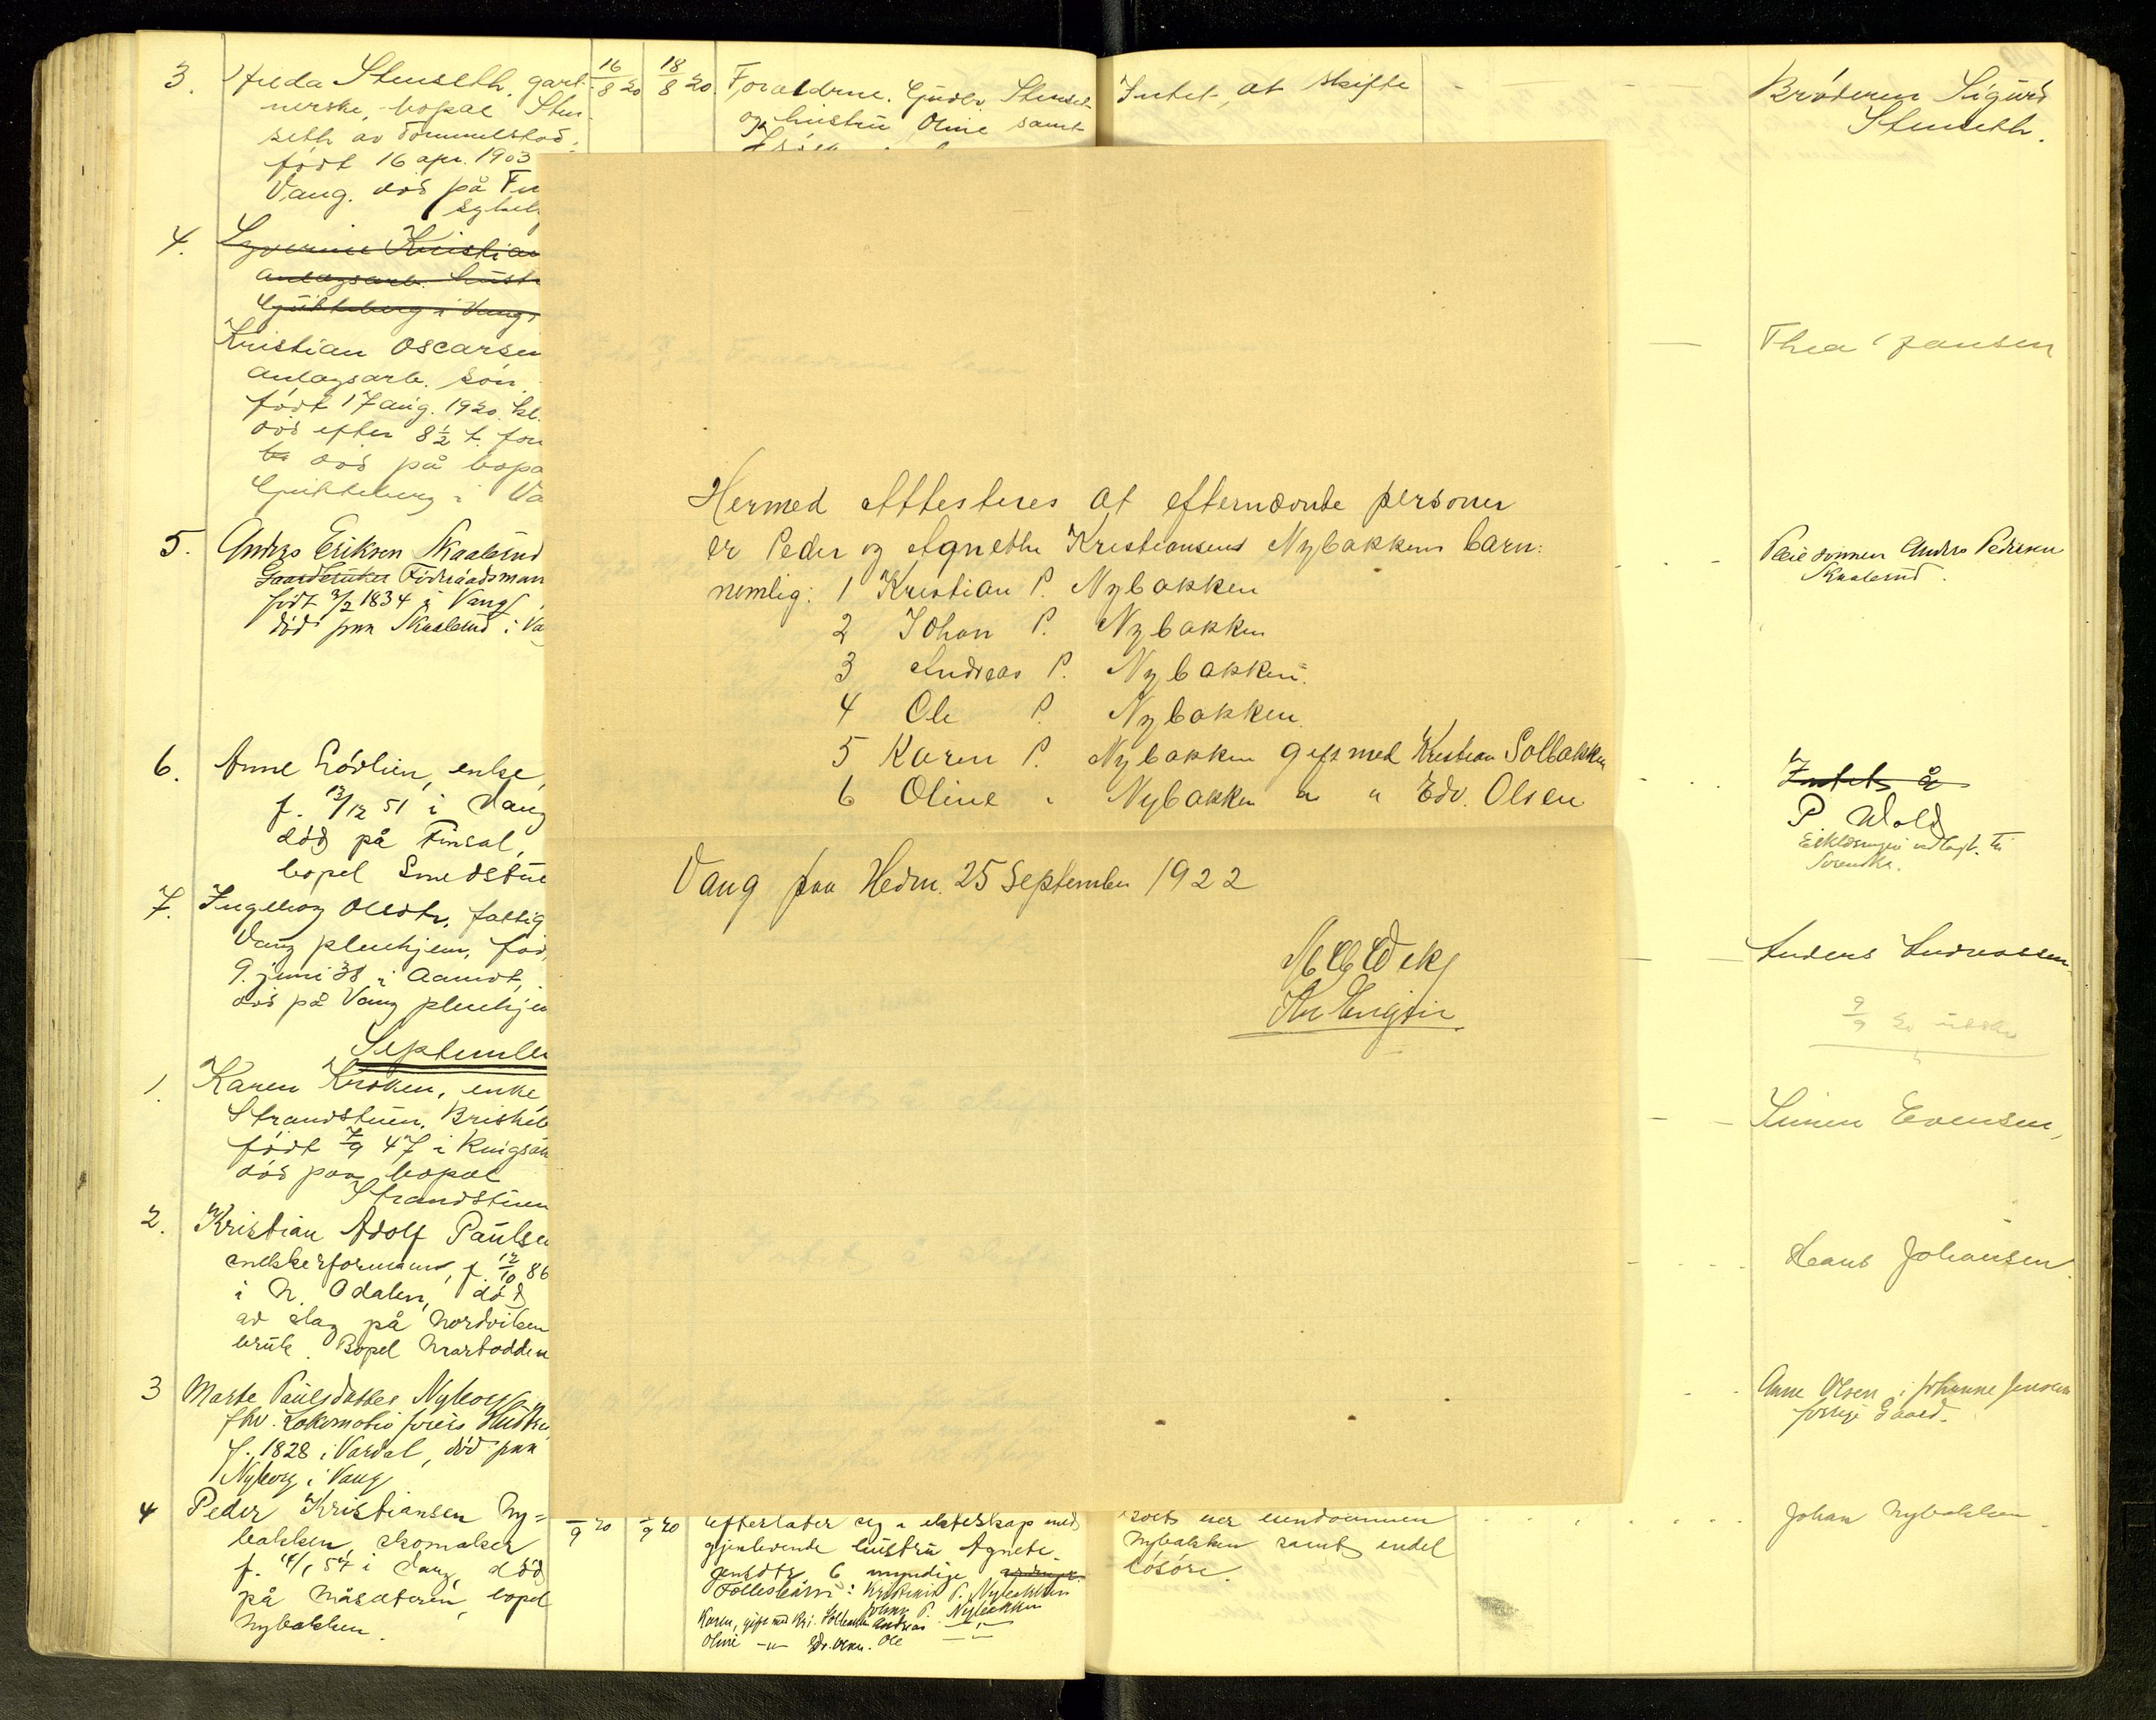 3.
Stenseth, gart-
nerske, bopæl Sten-
seth av Tommelstad,
født 16 apr. 1903
Vang. død på Fu
sykeh
16/8 20
18/8 20.
Forældrene. Gudbr. Stenset
og hustru Oline samt
Intet at skifte
Brøderen Sigurd
Stenseth.
4.
Kristian
anlægsarb. hustr
Gjükkeberg i Vang,
Kristian Oscarsen
anlægsarb. søn
født 17 aug. 1920. kl.
død efter 8 1/2 t. for
død på bopæ
Gjükkeberg i Va
Thea Jansen
5.
Anders Eriksen Skaalrud
Gaardbruker Födraadsman
født 3/2 1834 i Vang
död paa Skaalrud i Va
Pleiesønnen Anders Pedersen
Skaalrud.
6.
Anne Lövlien, enke,
f. 13/12 51 i Vang
död på Finsal,
bopel Smedstue
Intet å
P Wold
Erklæringen vedlagt. Til
7.
Ingeborg Olsdtr, fattig
Vang pleiehjem, fød,
9. juni 38 i Aamot,
død på Vang pleiehje
Anders Andreassen
9/9 20
September
1.
Karen Kroken, enke
Strandstuen, Briskeb
født 7/9 47 i Ringsak
död paa bopæl
Strandstuen
Simen Evensen,
2.
Kristian Adolf Paulse
snekkerformann, f. 12/10 86
i N. Odalen, död
av slag på Nordviken
bruk. Bopel Martodden
Hans Johansen.
3
Marte Paulsdatter Nyborg
fhv. Lokomotivförers Hustru
f. 1828 i Vardal, død paa
Nyborg i Vang
Anne Olsen i Johanne Jensens
forrige Gaard.
4
Peder Kristiansen Ny=
bakken, skomaker
f. 14/1 54 i Vang, død
på Måsæteren, bopel
Nybakken.
/9 20
/9 20
efterlater sig i ekteskap med
gjenlevende hustru Agnete
Jensdtr 6 myndige
Fællesbarn: Kristian P. Nybakken
Johan P. Nybakken
Karen, gift med Kr. Solbakken Andreas —"—
Oline —"— Edv. Olsen. Ole —"—
eiendommen
Nybakken samt endel
løsøre.
Johan Nybakken
Hermed attesteres at efternævnte personer
er Peder og Agnethe Kristiansens Nybakkens barn:
nemlig: 1 Kristian P. Nybakken
2 Johan P. Nybakken
3 Andreas P. Nybakken.
4 Ole P. Nybakken.
5 Karen P. Nybakken gift med Kristian Solbakken
6 Oline " Nybakken " " Edv. Olsen
Vang paa Hedm. 25 September 1922